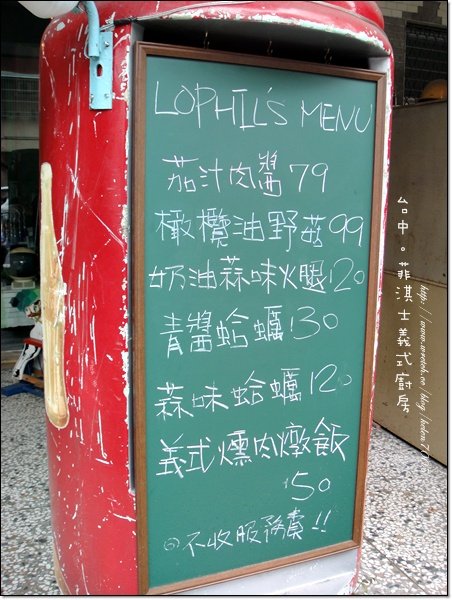 LOPHIL'S MENU
茄汁肉醬 79
橄欖油野菇 99
奶油蒜味火腿 120
青醬蛤蠣 130
蒜味蛤蠣 120
義式燻肉燉飯
150
◎不收服務費!!
台中。菲淇士義式廚房